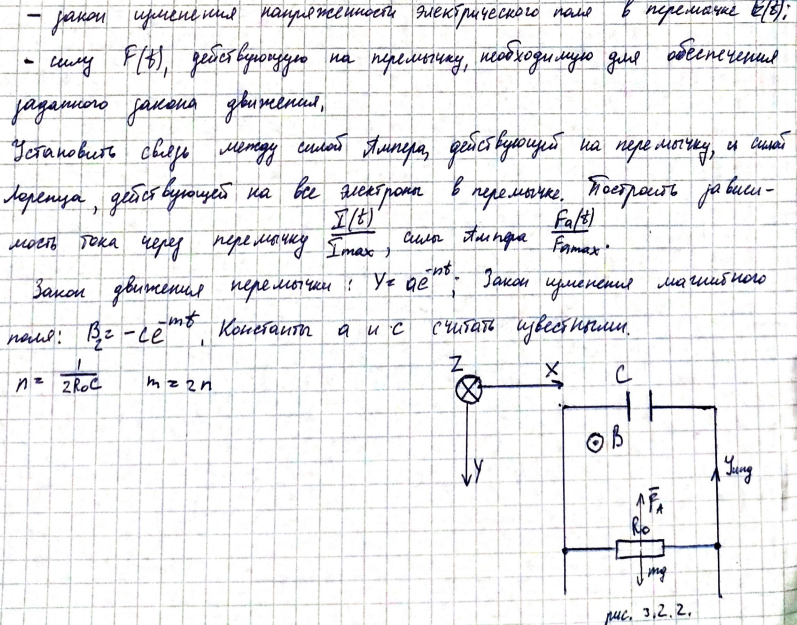 - закон изменения напряженности электрического поля в перемычке E(t);
- силу F(t), действующую на перемычку, необходимую для обеспечения
заданного закона движения.
Установить связь между силой Ампера, действующей на перемычку, и силой
Лоренца, действующей на все электроны в перемычке. Построить зависи-
мость тока через перемычку I(t)/Imax, силы Ампера Fa(t)/Famax.
Закон движения перемычки: y = ae^-nt; Закон изменения магнитного
поля: Bz = -ce^-mt. Константы a и c считать известными.
n = 1/2R₀C m = 2n
Z X C
B
Y Jинд
F̅A
R₀
mg
рис. 3.2.2.